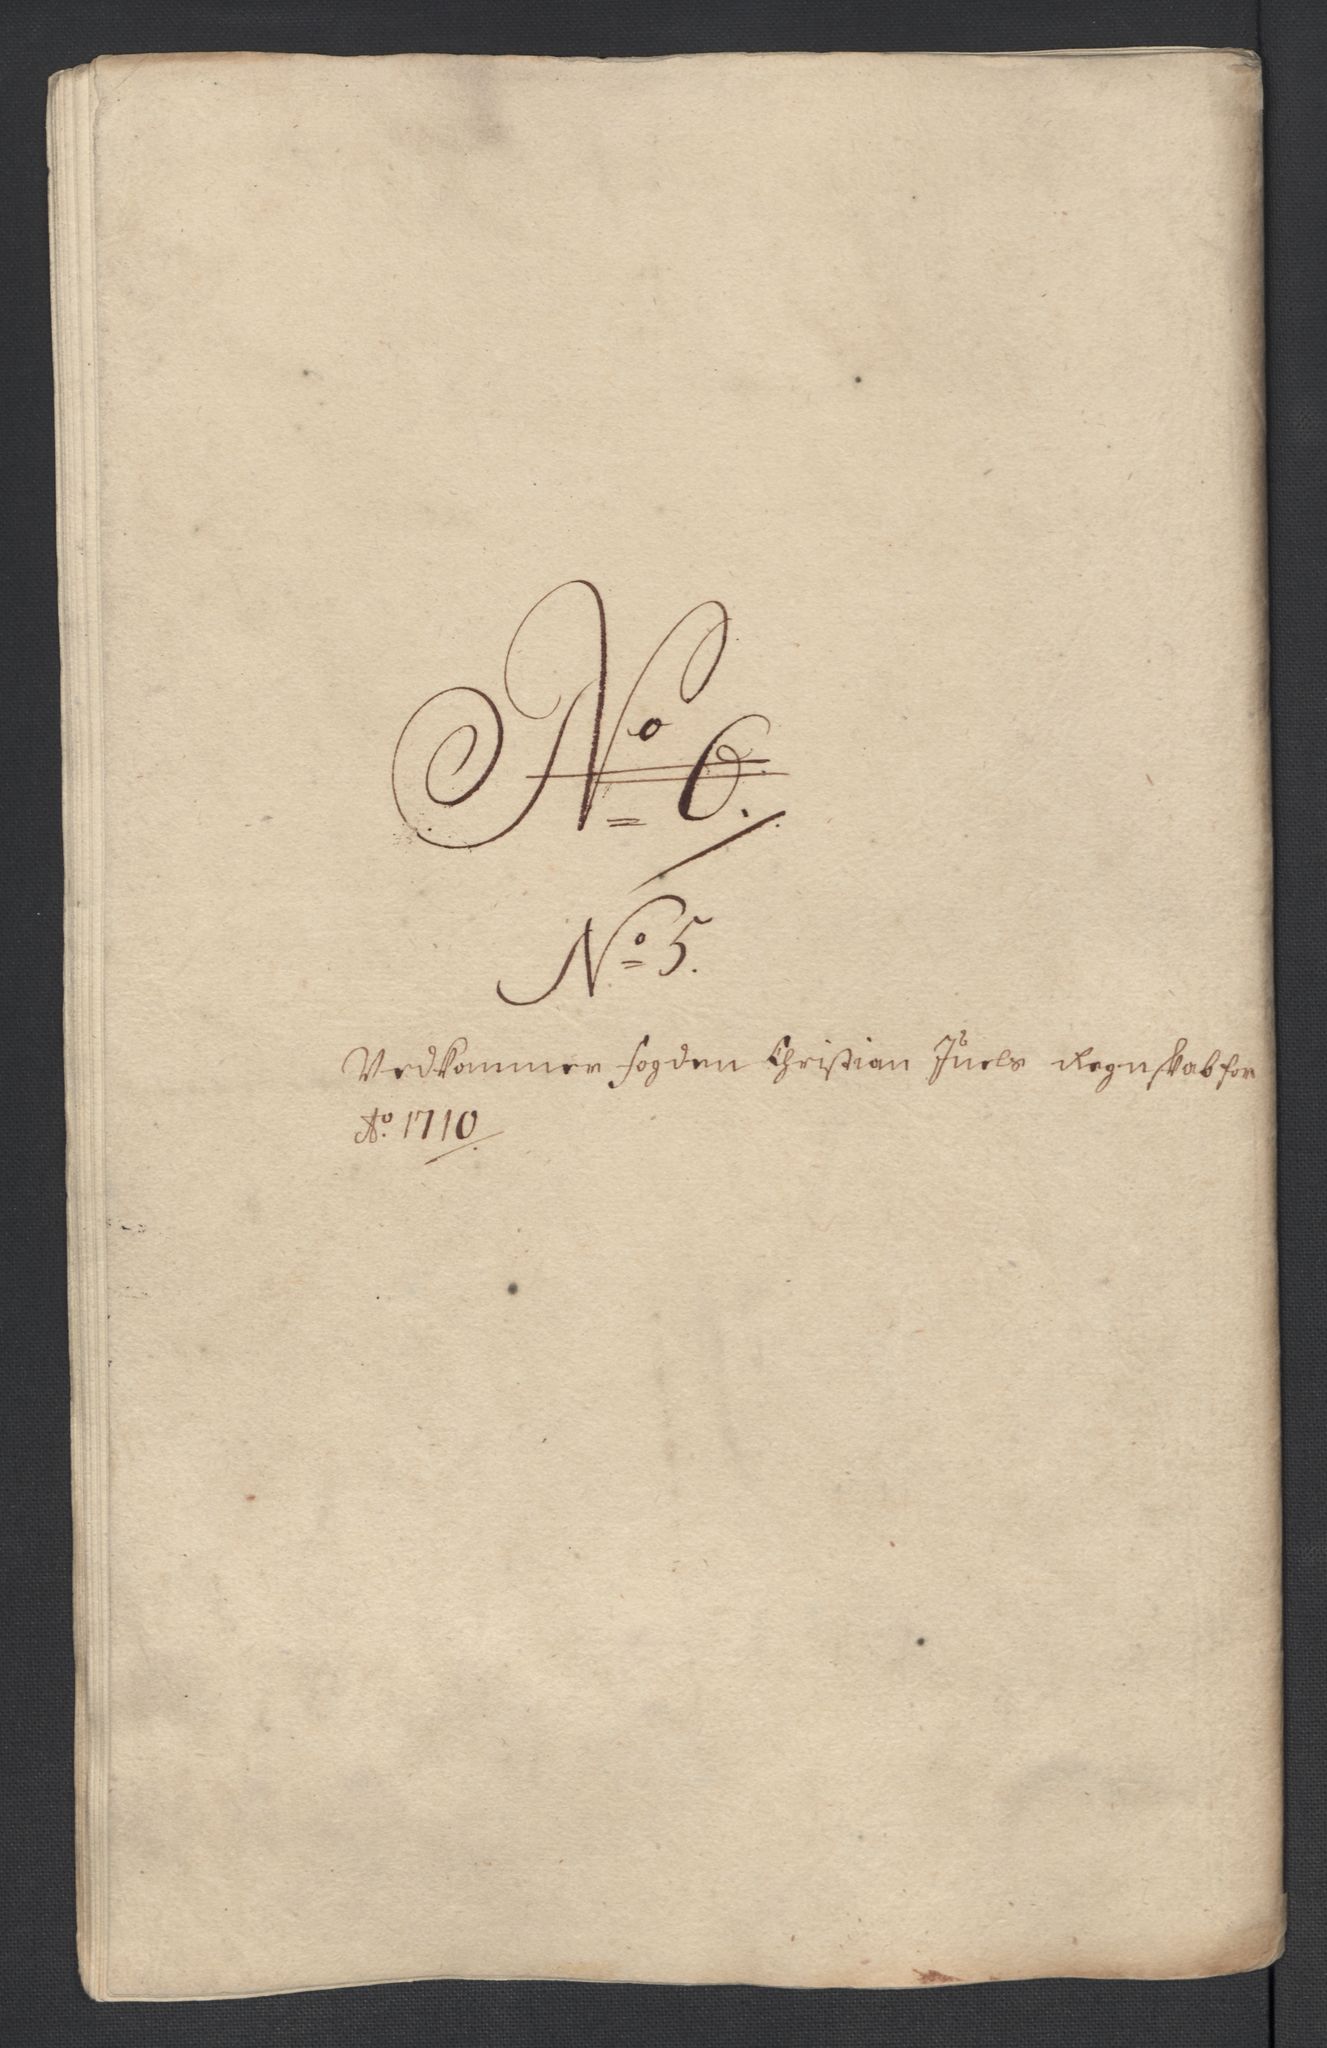 No 6.
No 5.
Vedkommer fogden Christian Juels Regnskab for
Ao. 1710